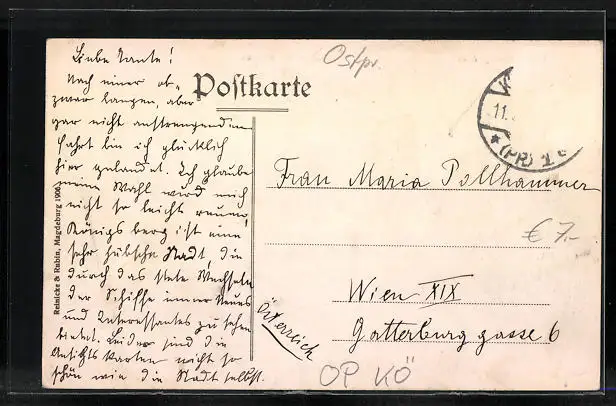 Liebe Tante!
Nach einer ob-
zwar langen, aber
gar nicht anstrengenden
Fahrt bin ich glücklich
hier gelandet. Ich glaube
meine Wahl wird mich
nicht so leicht reuen,
Königsberg ist eine
sehr hübsche Stadt, die
durch das stete Wechseln
der Schiffe immer Neues
und Interessantes zu sehen
bietet. Leider sind die
Ansichtskarten nicht so
schön wie die Stadt selbst.
Reinicke & Rubin, Magdeburg
Postkarte
Ostpr.
11.
(PR) 1
Frau Maria Pollhammer
€ 7.-
Wien XIX
Gatterburggasse 6
Österreich
OP KÖ